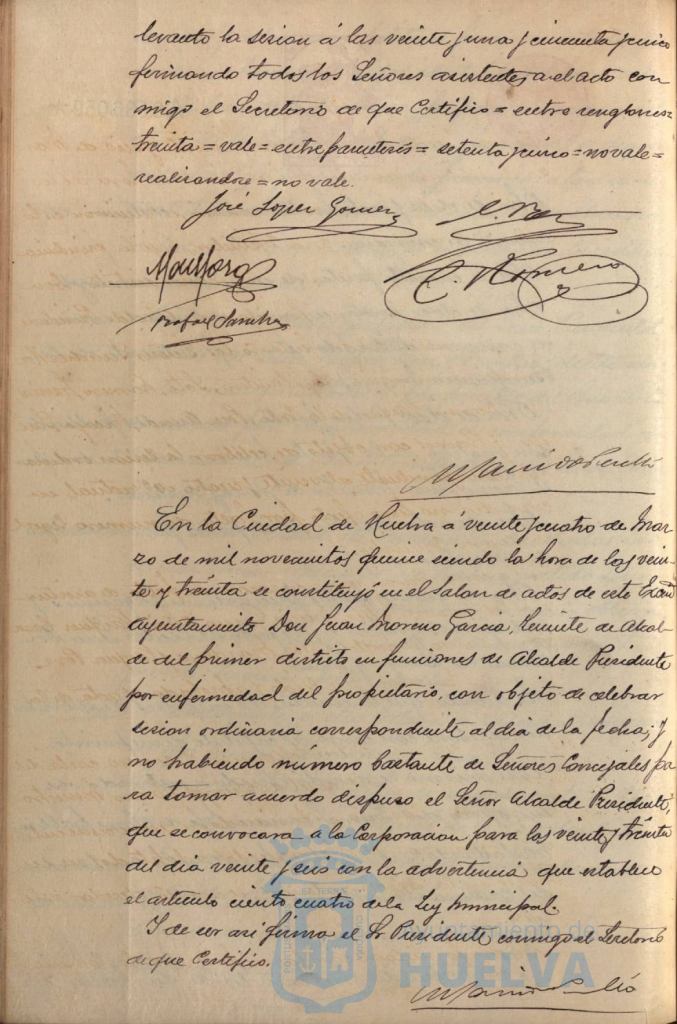 levanto la sesion á las veinte y una y cincuenta y cinco
firmando todos los Señores asistentes a el acto con
migo el Secretario de que Certifico = entre renglones =
treinta = vale = entreparentesis = setenta y cinco = no vale =
realizandose = no vale.
José Lopez Gomez
C. Romero
Rafael Sanchez
En la Ciudad de Huelva á veinte y cuatro de Mar-
zo de mil novecientos quince siendo la hora de las vein-
te y treinta se constituyó en el Salon de actos de este Excmo
Ayuntamiento Don Juan Moreno Garcia, Teniente de Alcal-
de del primer distrito en funciones de Alcalde Presidente
por enfermedad del propietario, con objeto de celebrar
sesion ordinaria correspondiente al dia de la fecha; y
no habiendo número bastante de Señores Concejales pa
ra tomar acuerdo dispuso el Señor Alcalde Presidente,
que se convocara a la Corporacion para las veinte y treinta
del dia veinte y seis con la advertencia que establece
el articulo ciento cuatro de la Ley Municipal.
Y de ser asi firma el Sr Presidente conmigo el Secretario
de que Certifico.
Ayuntamiento de
HUELVA